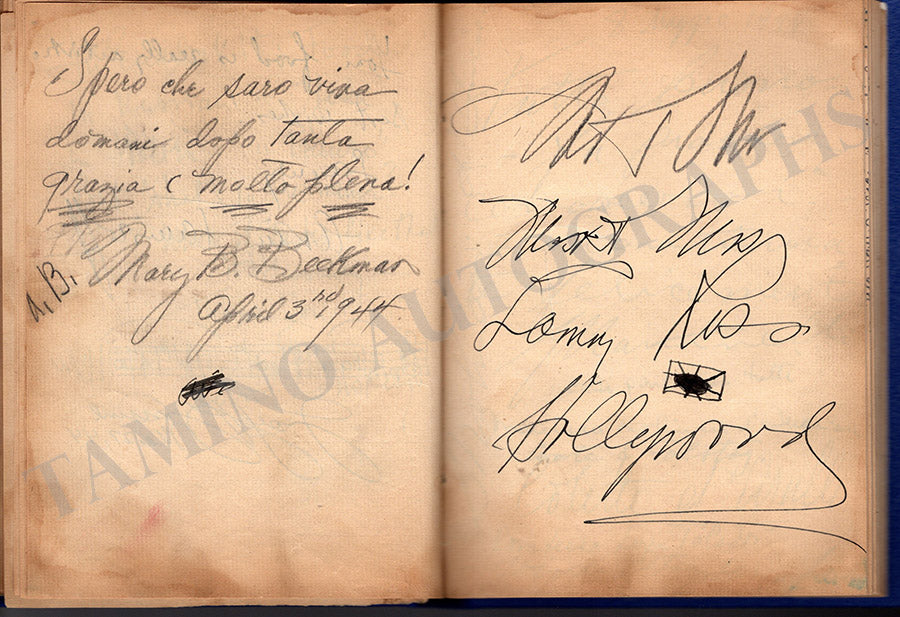 Spero che saro viva
domani dopo tanta
grazia e molto plena!
Mary B. Beekman
A.B.
April 3rd 1944
Lanny Ross
Hollywood
TAMINO AUTOGRAPHS